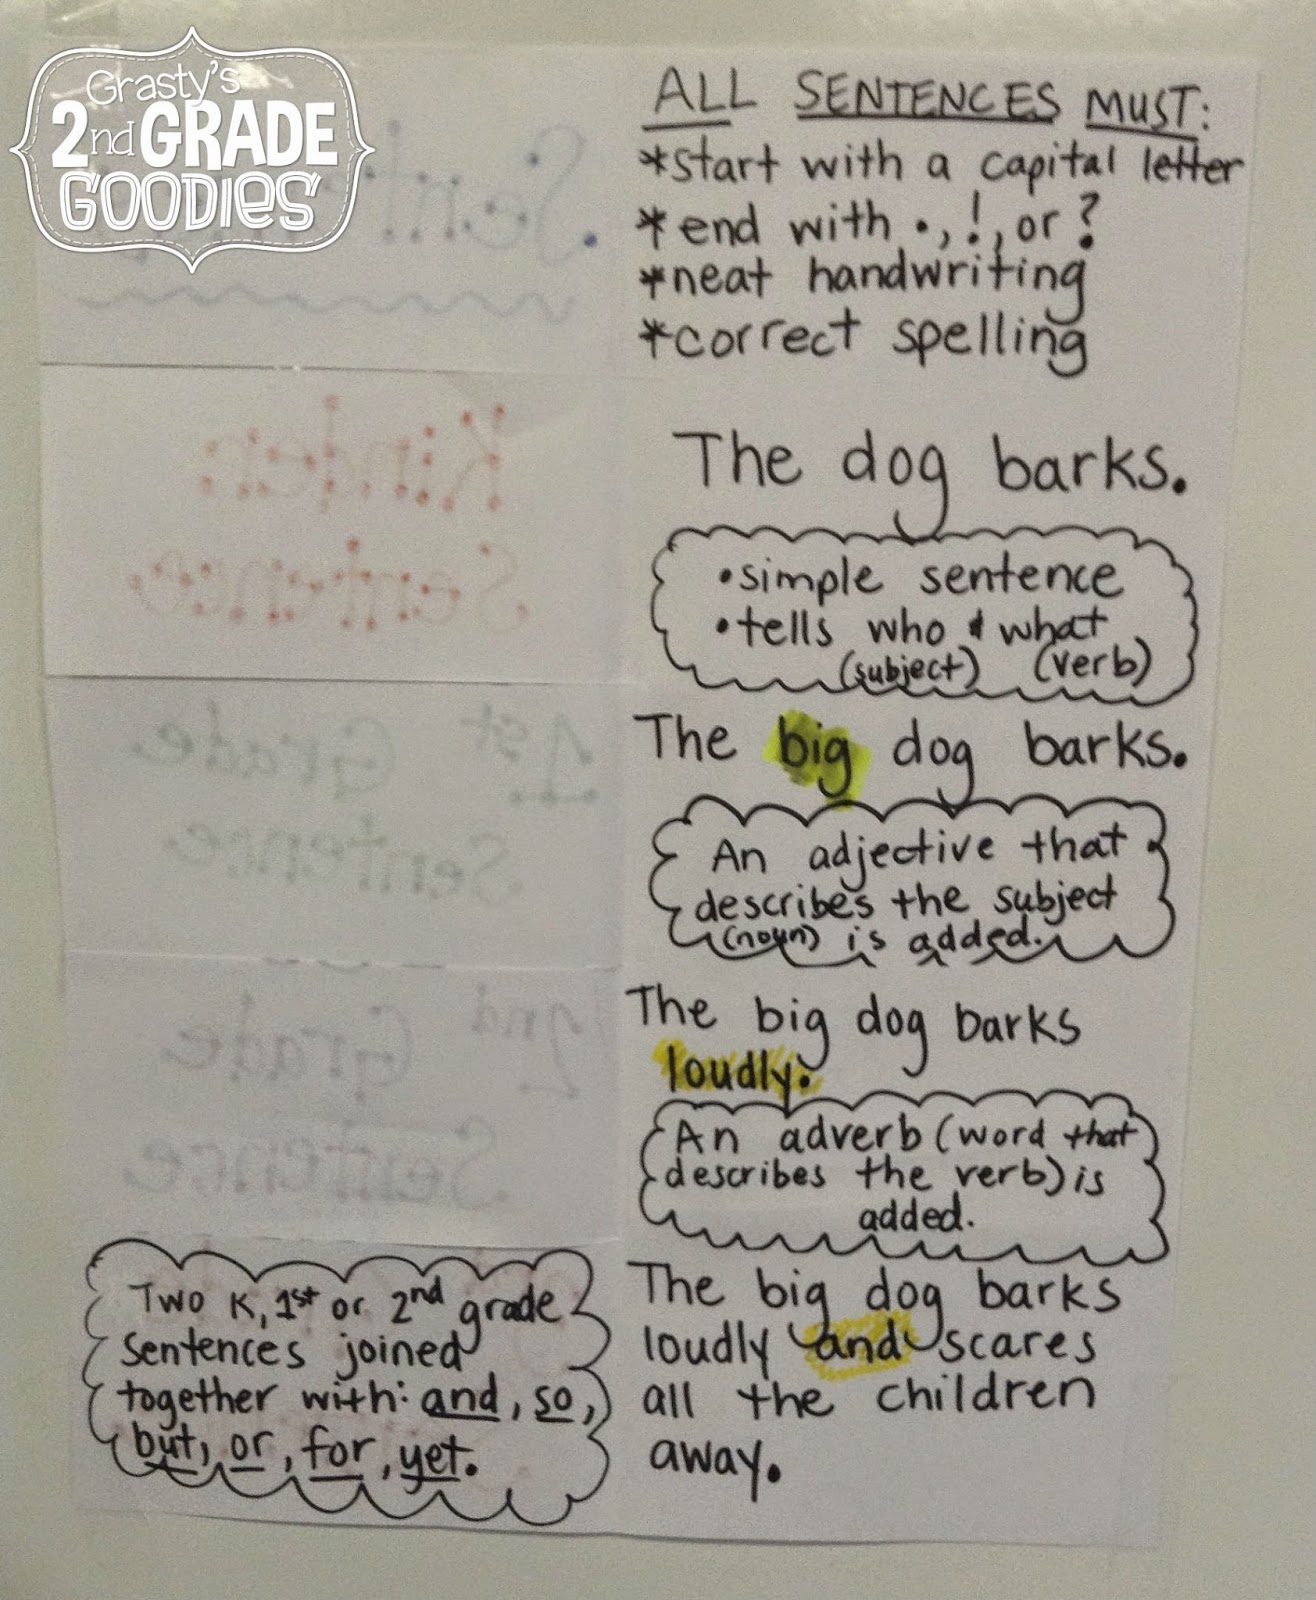 Grasty's
2nd GRADE
GOODIES
ALL SENTENCES MUST:
*start with a capital letter
*end with ., !, or ?
*neat handwriting
*correct spelling
Kinder
Sentence
The dog barks.
•simple sentence
•tells who & what
(subject) (verb)
1st Grade
Sentence
The big dog barks.
An adjective that
describes the subject
(noun) is added.
2nd Grade
Sentence
The big dog barks
loudly.
An adverb (word that
describes the verb) is
added.
Two K, 1st or 2nd grade
sentences joined
together with: and, so,
but, or, for, yet.
The big dog barks
loudly and scares
all the children
away.